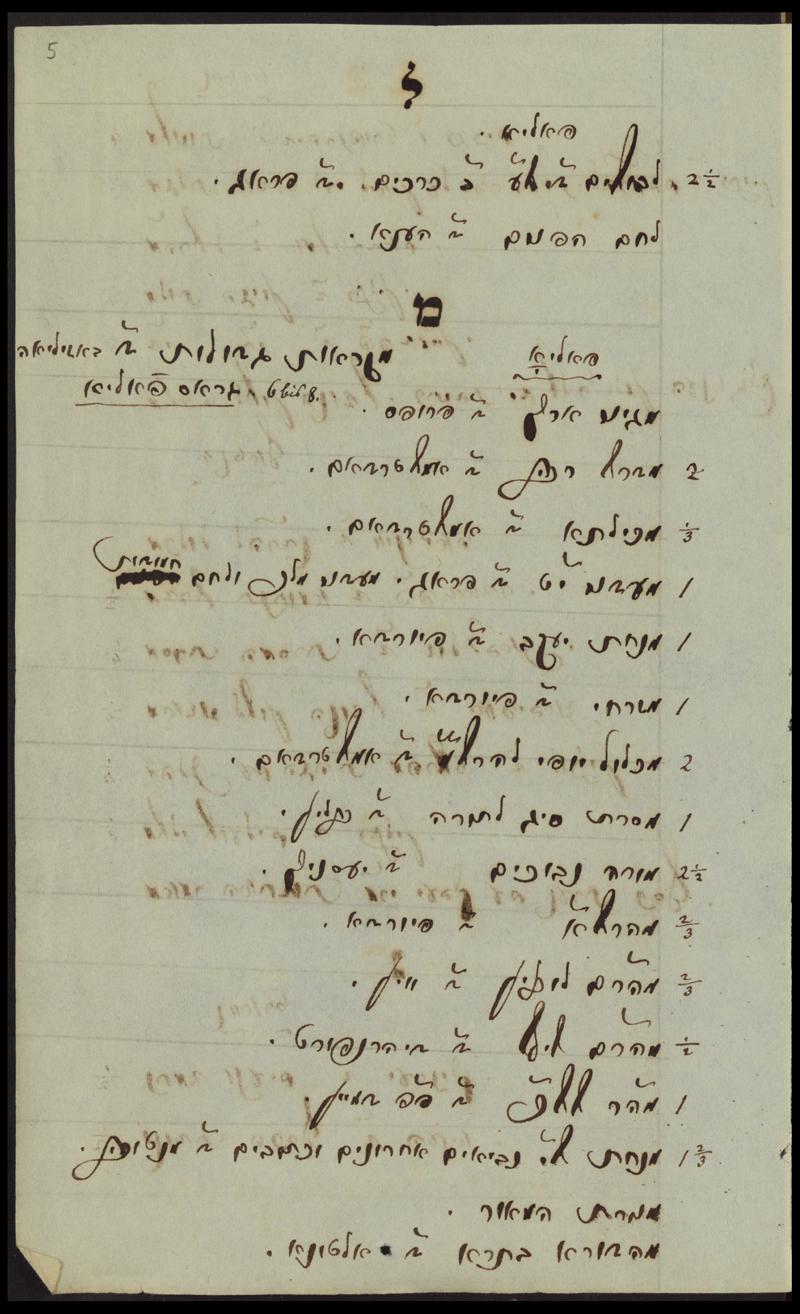 5
ל
פאליא.
2½ לבושים ב' כרכים. פראג.
לחם הפנים ד' ווענא.
מ
פאליא
מקראות גדולות ד' באזיליאה
גראס פאליא
מגיני ארץ ד' פרופס.
2 מברטנורה ד' אמשטרדאם.
⅓ מכילתא ד' אמשטרדאם.
1 מעדני י"ט ד' פראג. מעדני מלך ולחם חמודות
1 מנחת יעקב ד' פיורדא.
1 מזרחי ד' פיורדא.
2 מכלול יופי ד' אמשטרדאם.
1 מסרת סיג לתורה ד'
2½ מורה נבוכים ד' יעסניץ.
⅔ מהרש"א ד' פיורדא.
⅔ מהר"ם לובלין ד' ווין.
½ מהר"ם ד' דיהרנפורט.
1 מהר"ם ד' פפ דמיין.
1⅔ מנחת שי נביאים אחרונים וכתובים ד' מנטובה.
מנורת המאור.
מהדורא בתרא ד' אלטונא.